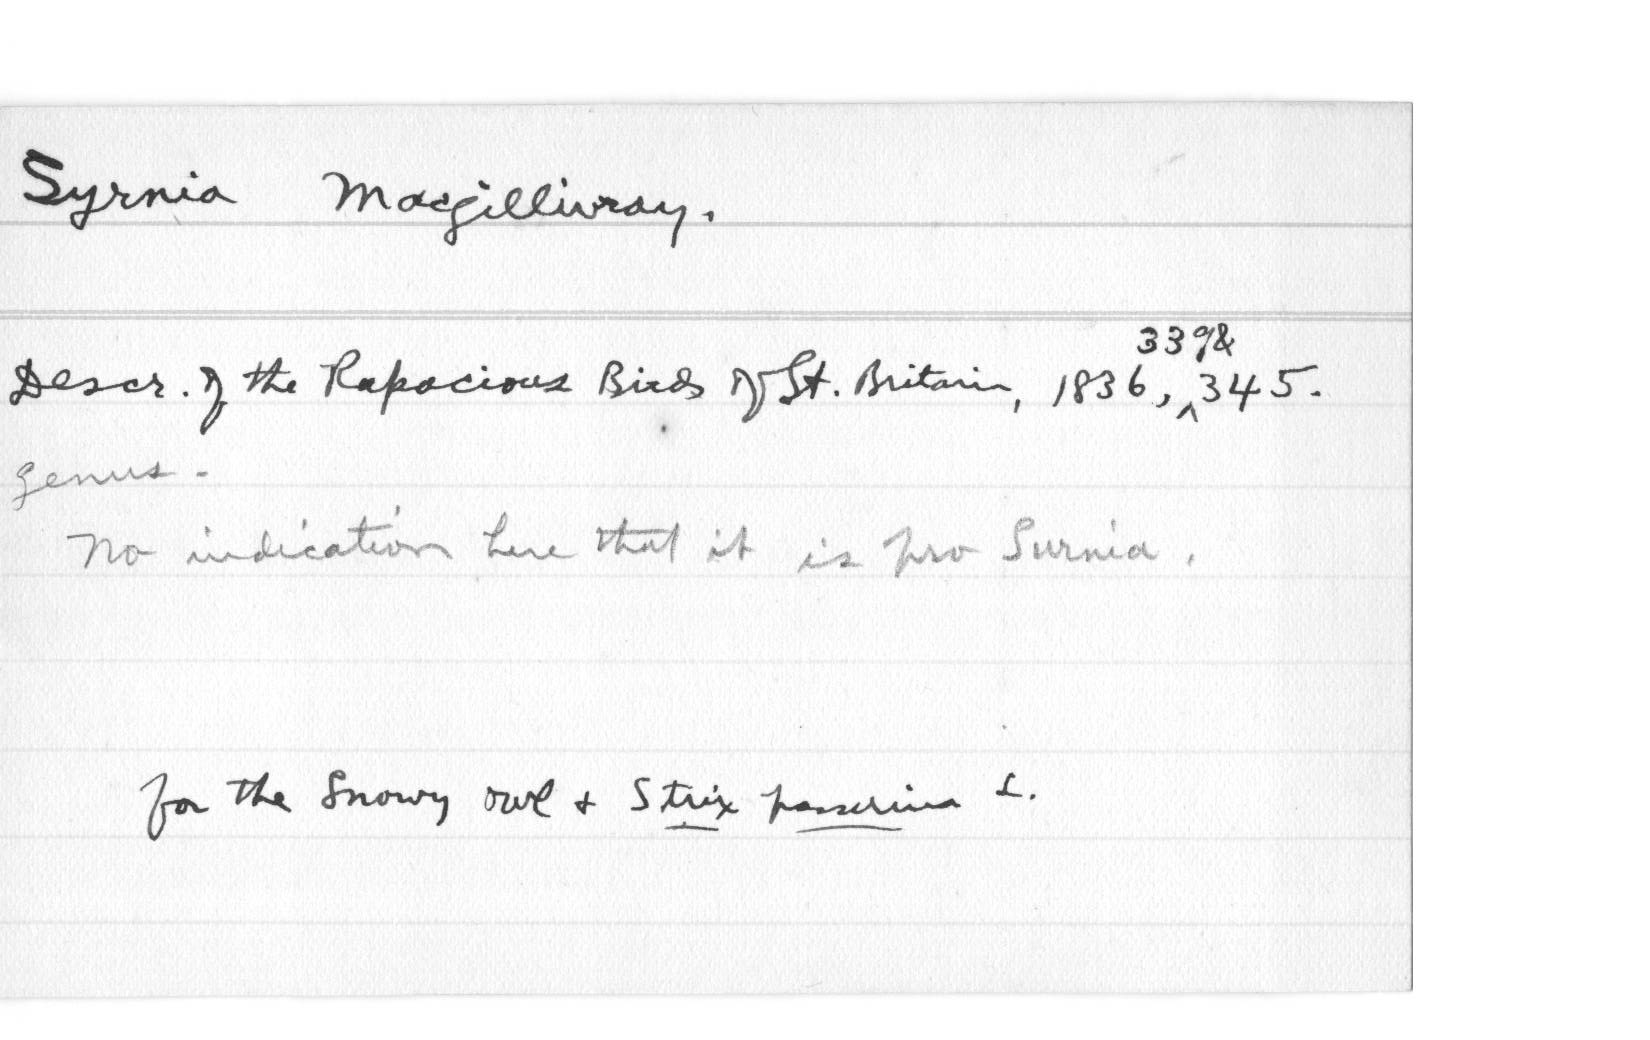 Syrnia Macgillivray.
Descr. of the Rapacious Birds of Gt. Britain, 1836, 339 & 345.
genus.
No indication here that it is pro Surnia.
for the Snowy owl & Strix passerina L.